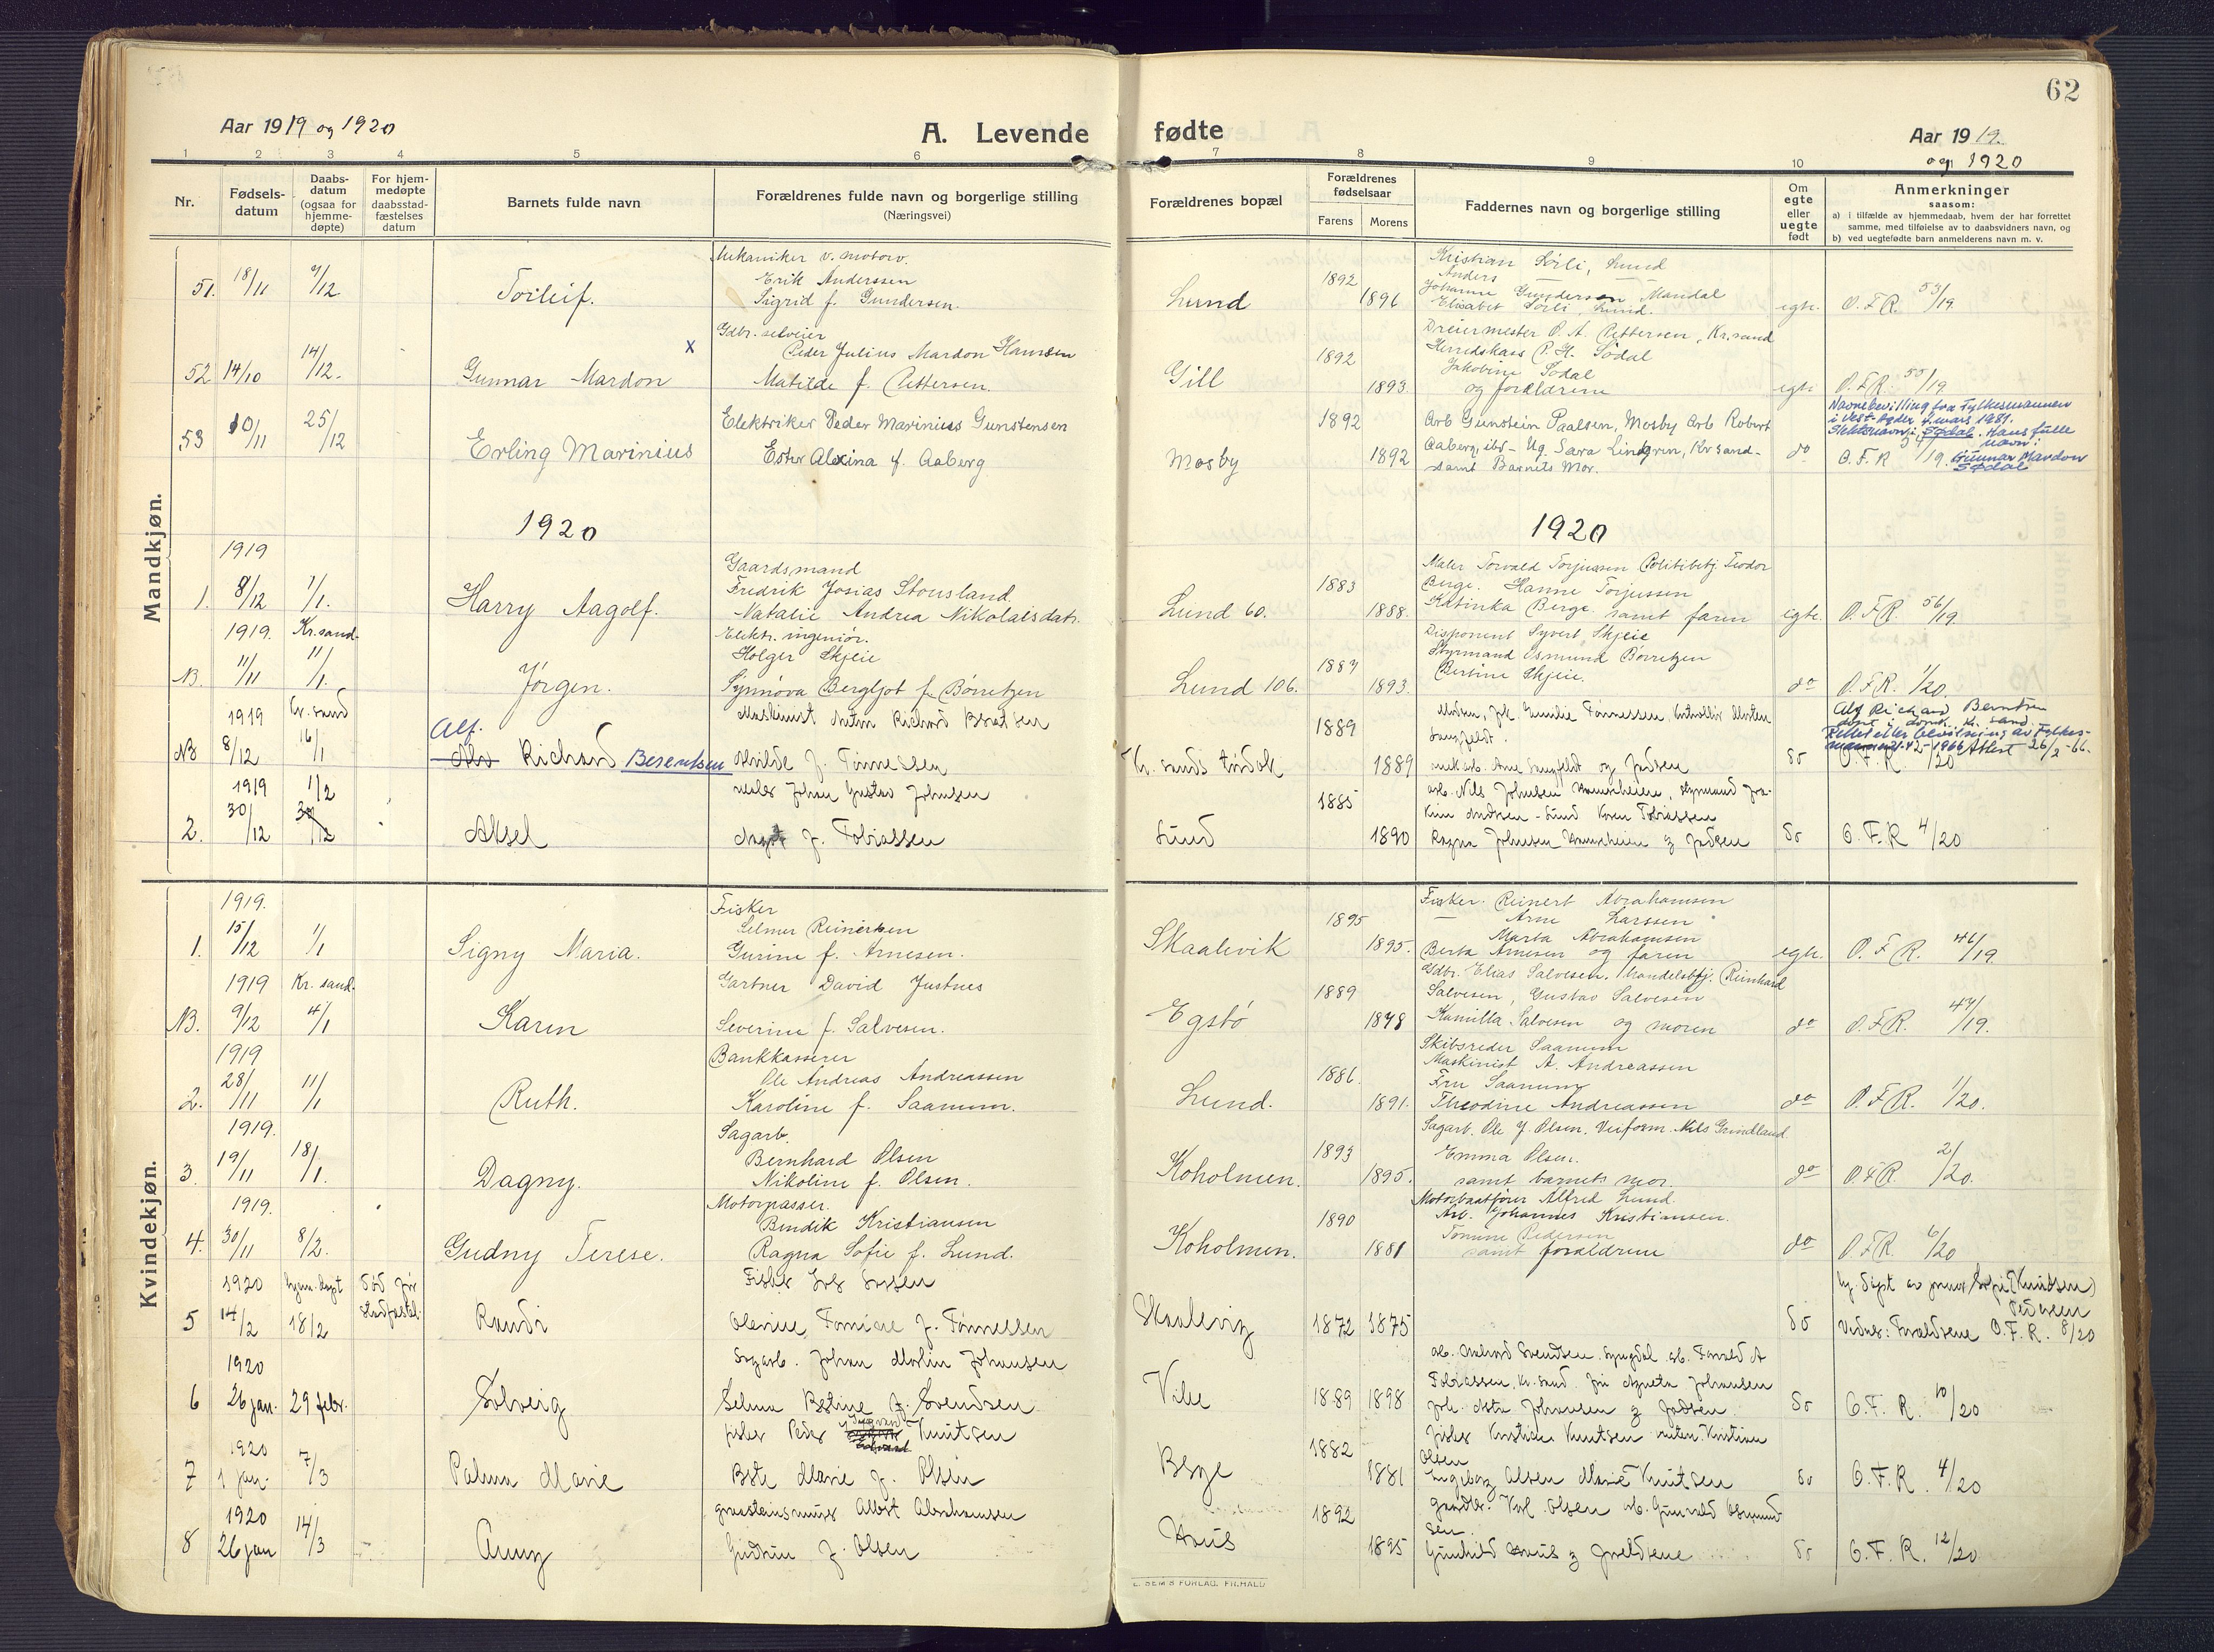 62
Aar 1919 og 1920
A. Levende fødte
Aar 1919.
og 1920
1 2 3 4 5 6 7 8 9 10
Nr.
Fødsels-
datum
Daabs-
datum
(ogsaa for
hjemme-
døpte)
For hjem-
medøpte
daabsstad-
fæstelses
datum
Barnets fulde navn
Forældrenes fulde navn og borgerlige stilling
(Næringsvei)
Forældrenes bopæl
Forældrenes
fødselsaar
Farens Morens
Faddernes navn og borgerlige stilling
Om
egte
eller
uegte
født
Anmerkninger
saasom:
a) i tilfælde av hjemmedaab, hvem der har forrettet
samme, med tilføielse av to daabsvidners navn, og
b) ved uegtefødte barn anmelderens navn m. v.
Mandkjøn.
51. 18/11 7/12 Torleif.
Mekaniker v. motorv.
Erik Anderssen
Sigrid f. Gundersen.
Lund 1892 1896
Kristian Sørli, Lund
Anders
Johanne Gundersen Mandal
Elisabet Sørli, Lund.
egte. O.F.R. 53/19
52 14/10 14/12. Gunnar Mardon x
Gdbr. selveier
Peder Julius Mardon Hansen
Matilde f. Pettersen.
Gill 1892 1893.
Dreiermester O. A. Pettersen, Kr.sand
Herredskass P. H. Sødal
Jakobine Sødal
og forældrene
egte O.F.R. 55/19
Navnebevilling fra Fylkesmannen
i Vest-Agder 4. mars 1981.
Slektsnavn: Sødal. Hans fulle
navn:
Gunnar Mardon
Sødal
53 10/11 25/12 Erling Marinius
Elektriker Peder Marinius Gunstensen
Ester Alexina f. Aaberg
Mosby 1892 1892
Arb Gunstein Paalsen, Mosby Arb Robert
Aaberg, ibd - Ug. Sara Lindgren, Kr sand-
samt Barnets Mor.
do O.F.R /19.
1920
1920
1919
1. 8/12 1/1. Harry Aagolf.
Gaardsmand
Fredrik Josias Stousland.
Natalie Andrea Nikolaisdatr.
Lund 60. 1883 1888.
Maler Torvald Torjussen Politibetj. Teodor
Berge. Hanne Torjussen
Katinka Berge samt faren
egte. O.F.R. 56/19
1919. Kr.sand.
NB. 11/11 11/1. Jørgen.
Elektr. ingeniør.
Holger Skjeie
Synnøva Bergljot f. Børretzen
Lund 106. 1887 1893.
Disponent Syvert Skjeie
Styrmand Osmund Børretzen
Bertine Skjeie.
do O.F.R. 1/20.
1919 Kr. sand
NB 8/12 16/1 Alf. Richard Berentsen
Maskinist Anton Richard Berntsen
Hilde f. Tønnessen
Kr. sands 1889 1889
do
Alf Richard Berntsen
døpt i domk. Kr. sand.
Rettet etter bevilgning av Fylkes-
mannen 21-2-1966 Attest 26/2-66.
O.F.R. /20
1919 1/2
2. 30/12 30/12 Aksel
maler Johan Gustav Johnsen
Agnt f. Tobiassen
Lund 1885 1890
arb. Nils Johnsen
Lund Karen Tobiassen
Ragna Johnsen
do O.F.R 4/20
Kvindekjøn.
1919.
1. 15/12 1/1 Signy Maria.
Fisker
Selmer Reinertsen
Gurine f. Arnesen.
Skaalevik 1895 1895.
Fisker. Reinert Abrahamsen
— Arne Larssen
Marta Abrahamsen
Berta Arnesen og faren
egte. O.F.R. 46/19
1919 Kr. sand.
NB. 9/12 4/1 Karen
Gartner David Justnes
Severine f. Salvesen.
Egstø 1889 1878
Gdbr. Elias Salvesen. Handelsbtj. Reinhard
Salvesen, Gustav Salvesen
Kamilla Salvesen og moren
do O.F.R. 47/19.
1919
2. 28/11 11/1 Ruth.
Bankkasserer
Ole Andreas Andreassen
Karoline f. Saanum.
Lund. 1886. 1891.
Skibsreder Saanum
Maskinist A. Andreassen
Fru Saanum
Theodine Andreassen
do O.F.R. 1/20.
1919.
3. 19/11 18/1. Dagny.
Sagarb.
Bernhard Olsen
Nikoline f. Olsen.
Koholmen. 1893 1895.
Sagarb. Ole J. Olsen. Veiform. Nils Grindland
Emma Olsen.
samt barnets mor.
do O.F.R. 2/20.
1919.
4. 30/11 8/2. Gudny Terese.
Motorpasser.
Bendik Kristiansen
Ragna Sofie f. Lund.
Koholmen. 1890 1881
Motorbaatfører Alfred Lund.
Arb. Johannes Kristiansen.
Tomine Pedersen
samt forældrene
do O.F.R. 6/20
1920 hjem. døpt Død før
5 14/2 18/2 stadfæstel. Randi
Fisker
Olevine Tomine f. Tønnessen
Skaalevig 1872 1875
do
hj. døpt av
Pedersen
Vidner: Forældrene O.F.R. 8/20
1920
6 26 jan. 29 febr. Solveig
Sagarb. Johan Martin Johansen
Selma Bertine f. Svendsen
1889 1898
Tobiassen, Kr. sand. fru Agneta Johansen
Johansen & Jordsen
do O.F.R. 10/20
1920
7 1 jan. 7/3 Palma Marie
fisker Peder Knutsen
Berte Marie f. Olsen
Berge 1882 1881
fisker Kristian Knutsen Kristian
Olsen
Ingeborg Olsen Marie Knutsen
do O.F.R. 4/20
1920
8 26 jan 14/3 Anny
Albert Abrahamsen
Gudrun f. Olsen
1892 1895
Karl Olsen arb. Gunvald Osmund-
sen.
Gunhild & forældrene
do O.F.R. 12/20
E. SEM'S FORLAG. FR.HALD